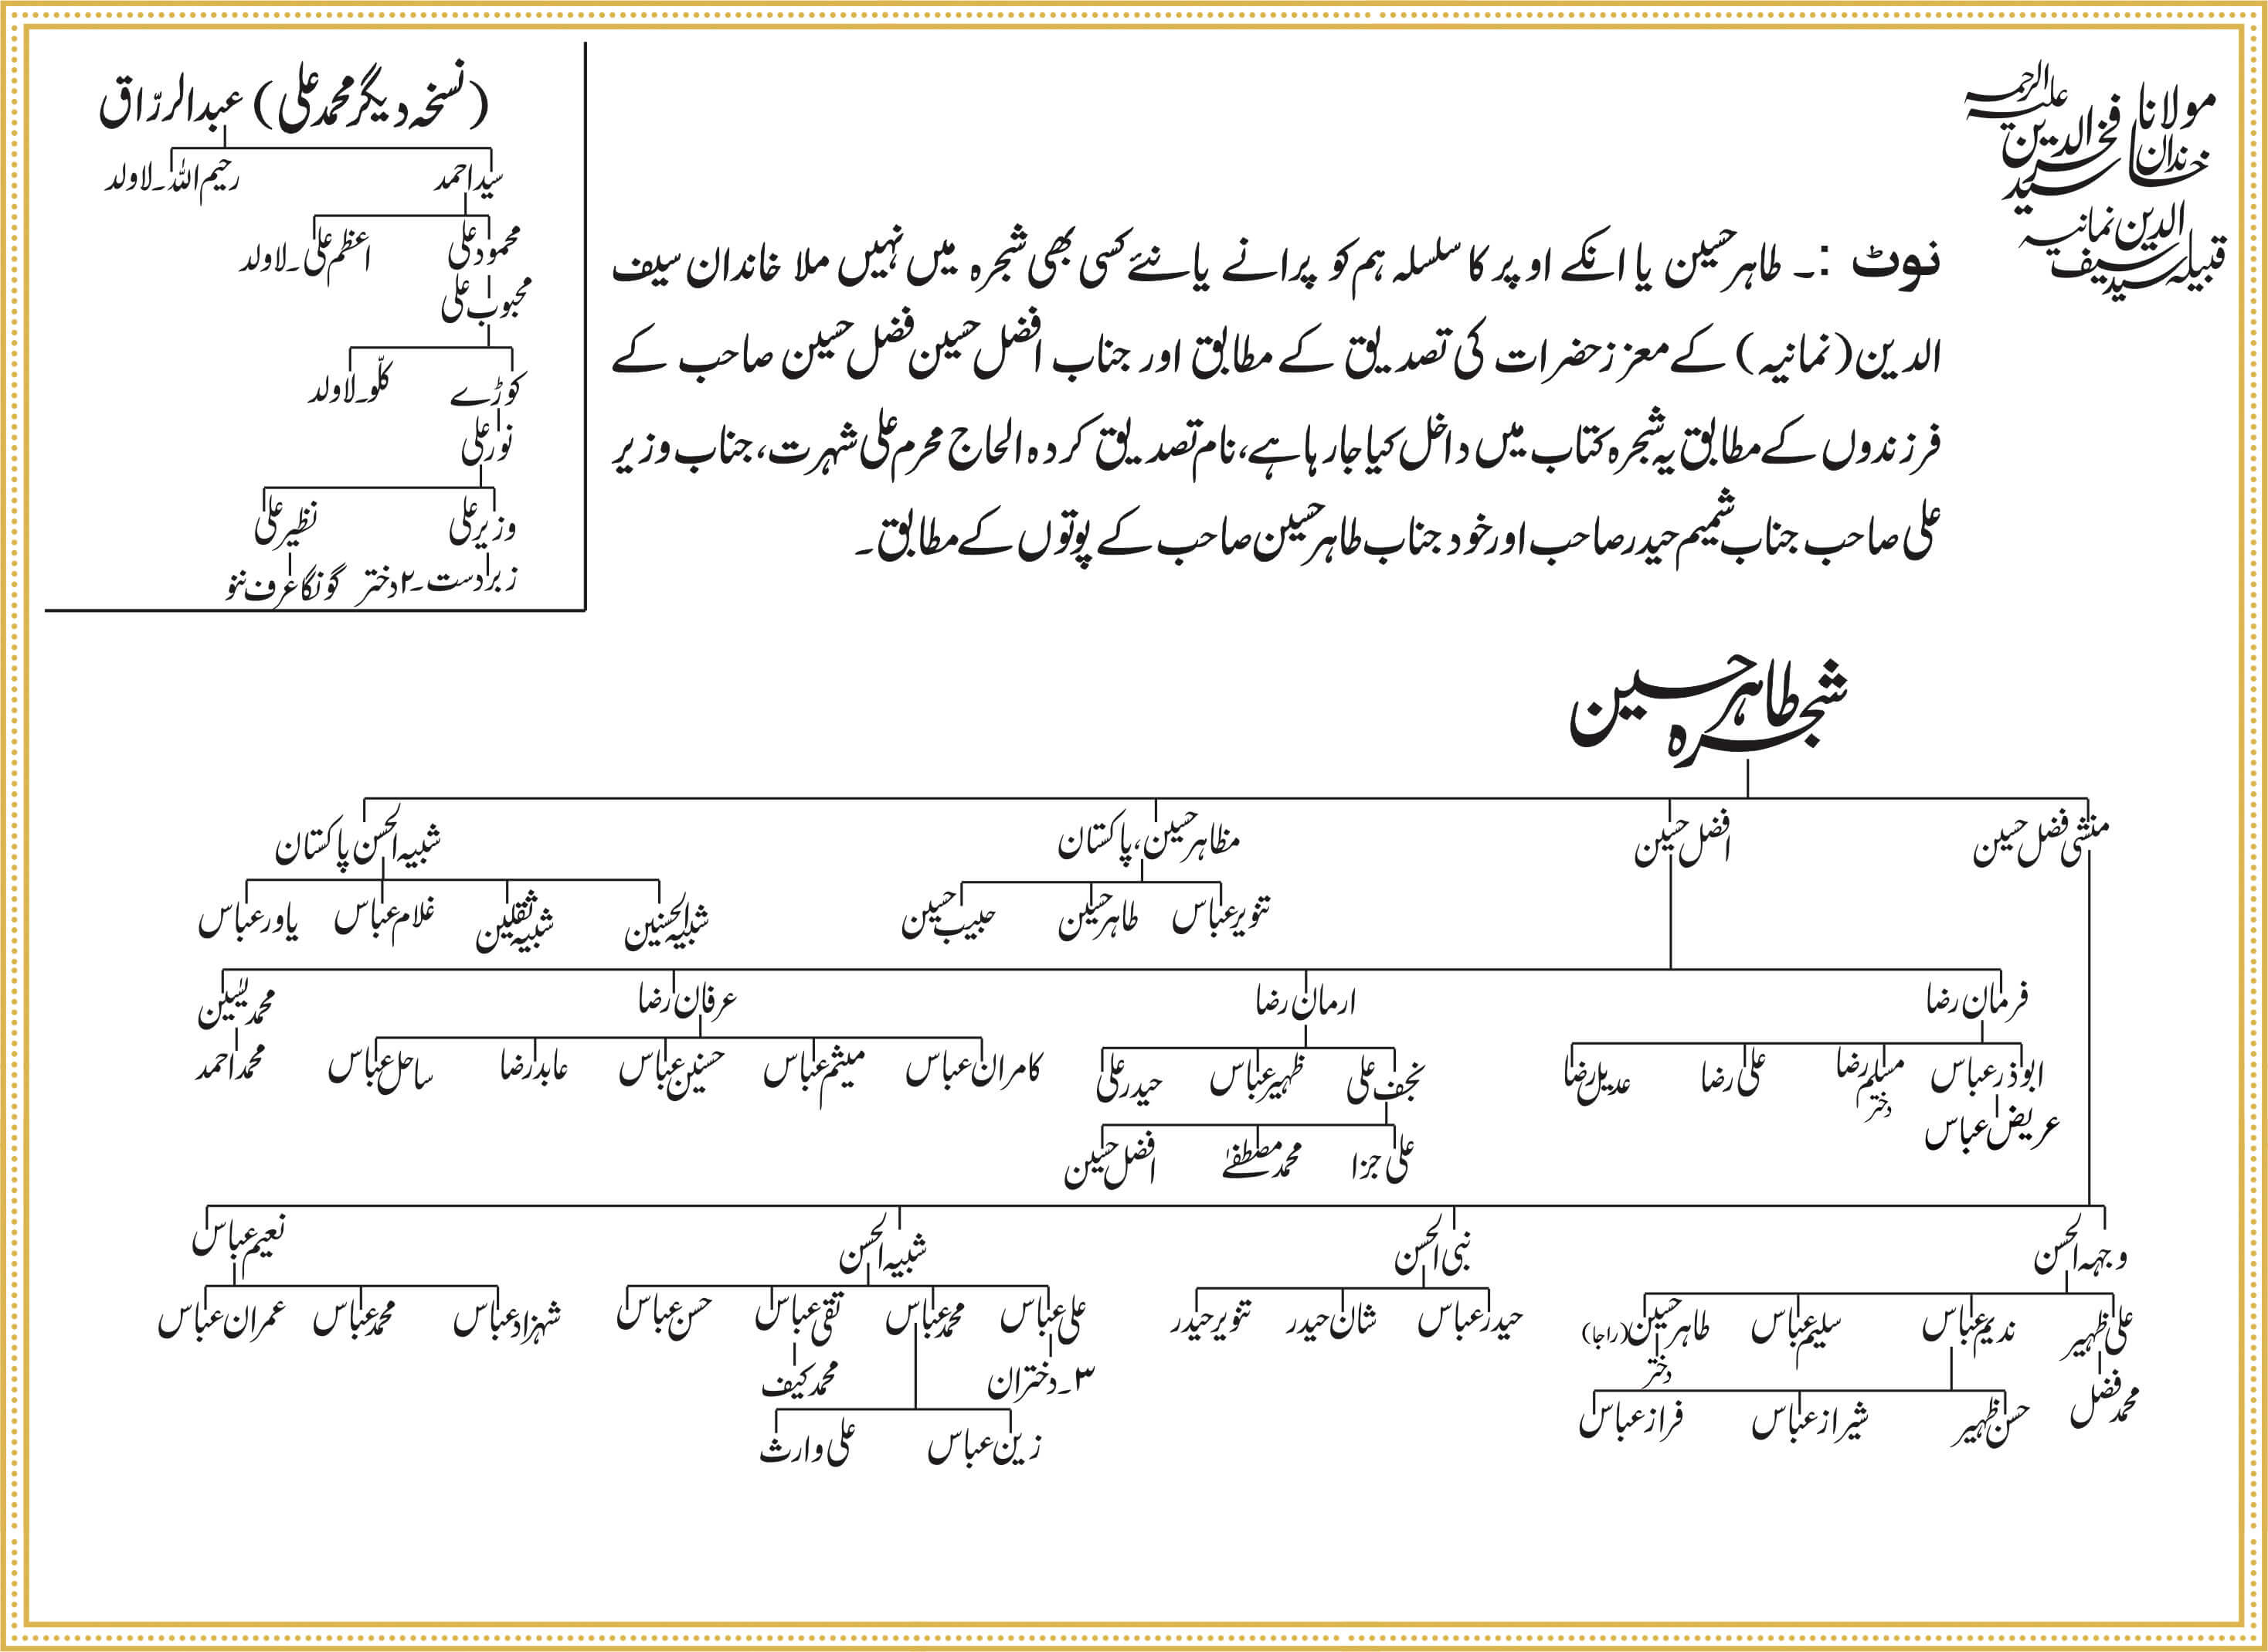 مولانا علیہ الرحمہ
خاندان سید فخر الدین
قبیلہ سید سیف الدین نمانیہ
نوٹ :۔ طاہر حسین یا انکے اوپر کا سلسلہ ہم کو پرانے یا نئے کسی بھی شجرہ میں نہیں ملا خاندان سیف
الدین (نمانیہ) کے معزز حضرات کی تصدیق کے مطابق اور جناب افضل حسین فضل حسین صاحب کے
فرزندوں کے مطابق یہ شجرہ کتاب میں داخل کیا جا رہا ہے، نام تصدیق کردہ الحاج محرم علی شہرت، جناب وزیر
علی صاحب جناب شمیم حیدر صاحب اور خود جناب طاہر حسین صاحب کے پوتوں کے مطابق۔
(نسخہ دیگر محمد علی) عبدالرزّاق
سید احمد رحیم اللہ۔لاولد
محمود علی اعظم علی۔لاولد
محبوب علی
کوڑے کلّو۔لاولد
نور علی
وزیر علی نظیر علی
زبردست۔۲ دختر گونگا عرف ننو
شجرہ طاہر حسین
منشی فضل حسین افضل حسین مظاہر حسین، پاکستان شبیہ الحسن پاکستان
تنویر عباس طاہر حسین حبیب حسین شبیہ الحسنین شبیہ ثقلین غلام عباس یاور عباس
فرمان رضا ارمان رضا عرفان رضا محمد یٰسین
ابوذر عباس مسلم رضا علی رضا عدیل رضا نجف علی ظہیر عباس حیدر علی کامران عباس میثم عباس حسنین عباس عابد رضا ساحل عباس محمد احمد
عریض عباس دختر علی جزا محمد مصطفےٰ افضل حسین
وجہہ الحسن نبی الحسن شبیہ الحسن نعیم عباس
علی ظہیر ندیم عباس سلیم عباس طاہر حسین (راجا) حیدر عباس شان حیدر تنویر حیدر علی عباس محمد عباس تقی عباس حسن عباس شہزاد عباس محمد عباس عمران عباس
محمد فضل دختر ۳۔دختران محمد کیف
حسن ظہیر شیراز عباس فراز عباس زین عباس علی وارث